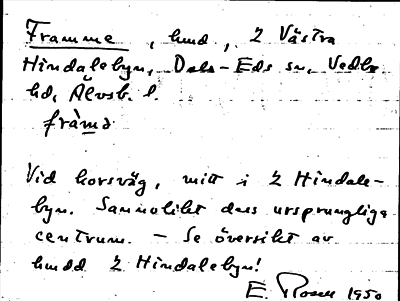 Framme, hmd, 2 Västra
Hindalebyn, Dals-Eds sn, Vedbo
hd, Älvsb. l.
fràmə
Vid korsväg, mitt i 2 Hindale-
byn. Sannolikt dess ursprungliga
centrum. - Se översikt av
hmdd 2 Hindalebyn!
E. Rosell 1950